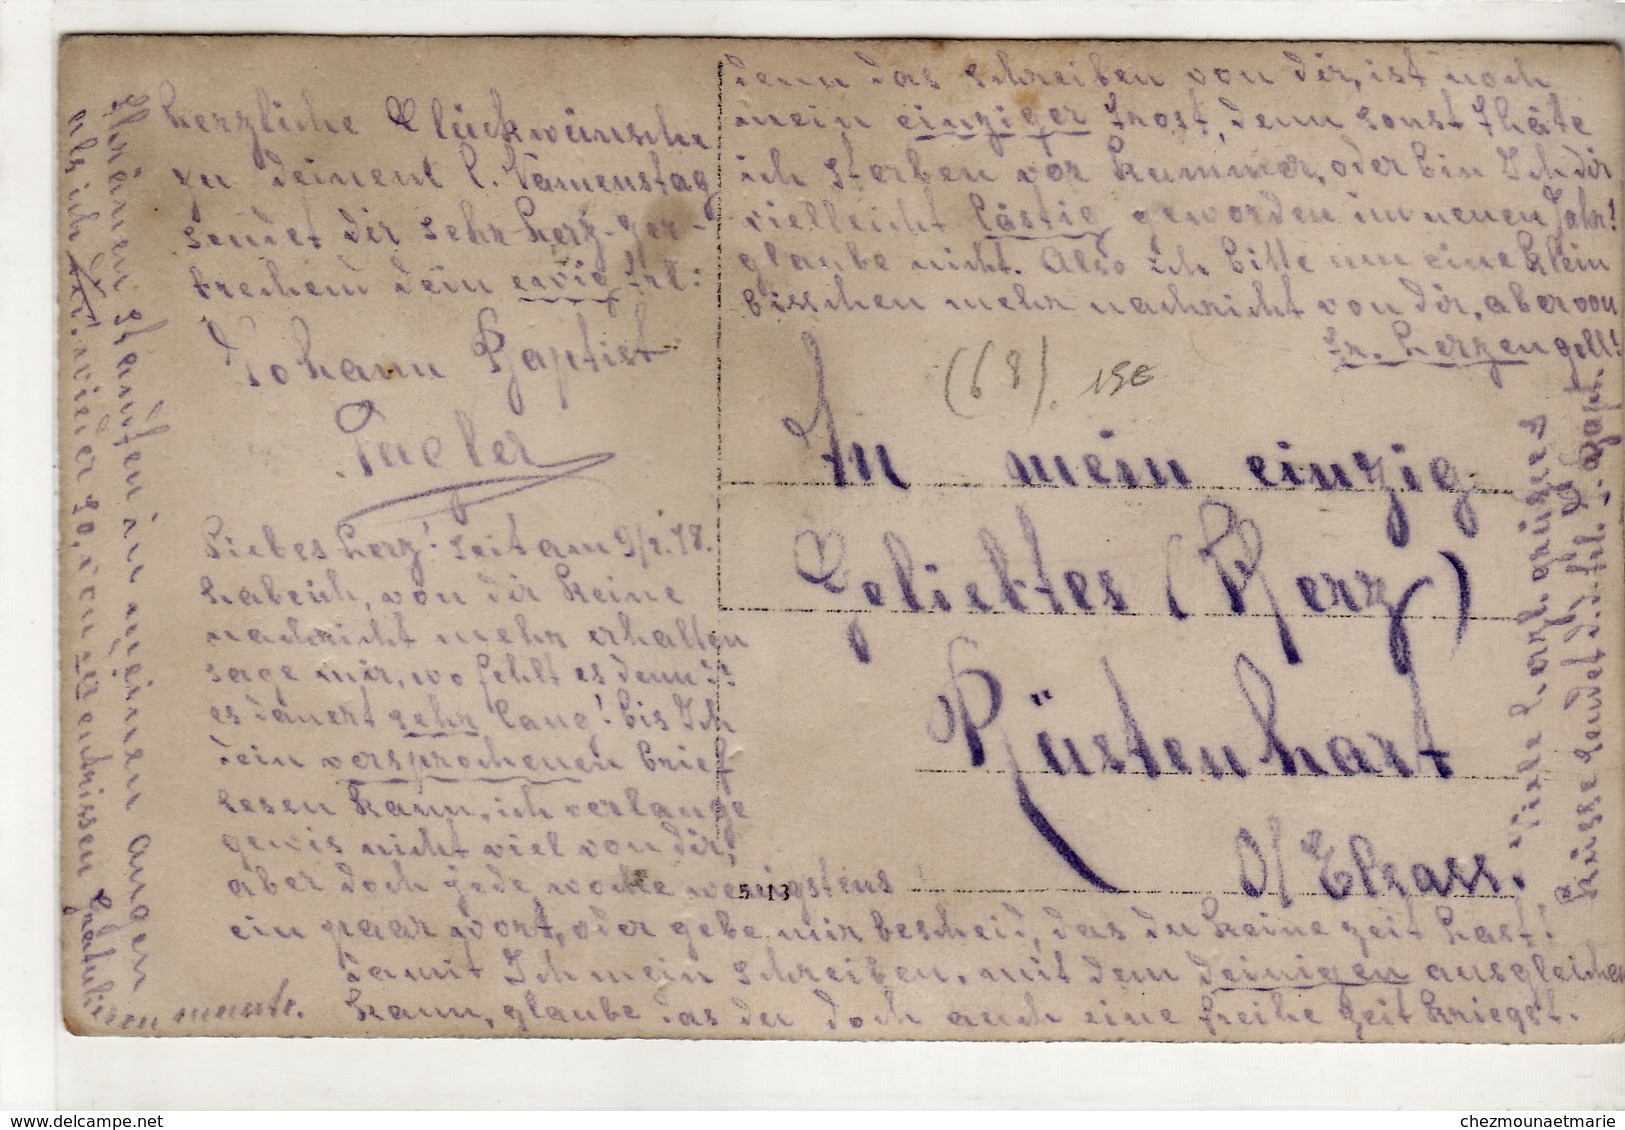 Herzliche Glückwünsche
zu deinem l. Namenstag
sendet dir sehr Herz-zer-
brechend dein ewig frl:
Johann Baptist
Liebes Herz! seit am 9/I.18.
habeich, von dir keine
nachricht mehr erhalten
sage mir, wo fehlt es denn?!
es dauert sehr lang! bis Ich
dein versprochenen brief
lesen kann, ich verlange
gewis nicht viel von dir,
aber doch jede woche wenigstens
ein paar wort, oder gebe mir bescheid, das du keine zeit hast!
damit Ich mein schreiben, mit dem deinigen ausgleichen
kann, glaube das du doch auch eine freihe zeit kriegst.
denn das schreiben von dir, ist noch
mein einziger trost, denn sonst thäte
ich sterben vor kummer, oder bin Ich dir
vielleicht lästig geworden im neuen Jahr!
glaube nicht. Also ich bitte um eine klein
bisschen mehr nachricht von dir, aber von
tr. herzen gell!
(68). 15€
An mein einzig
Geliebtes (Herz)
Rüstenhart
O/Elsass.
5113
Viele herzl. grüsse &
Küsse sendet d. frl. J. Bapt.
Thränen stanten in meinen augen
als ich wieder so, von dir entrissen gratulieren musste.
chezmounaetmarie
www.delcampe.net